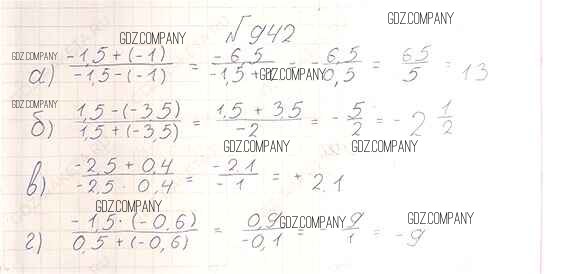 №942
GDZ.COMPANY
GDZ.COMPANY а) (-1,5 + (-1)) / (-1,5 - (-1)) = -6,5 / (-1,5 + GDZ.COMPANY = - 6,5 / 0,5 = 65 / 5 = 13
GDZ.COMPANY б) (1,5 - (-3,5)) / (1,5 + (-3,5)) = (1,5 + 3,5) / -2 = - 5/2 = -2 1/2
GDZ.COMPANY GDZ.COMPANY
в) (-2,5 + 0,4) / (-2,5 · 0,4) = -2,1 / -1 = + 2,1
GDZ.COMPANY GDZ.COMPANY GDZ.COMPANY
г) (-1,5 · (-0,6)) / (0,5 + (-0,6)) = 0,9 / -0,1 = 9 / 1 = -9